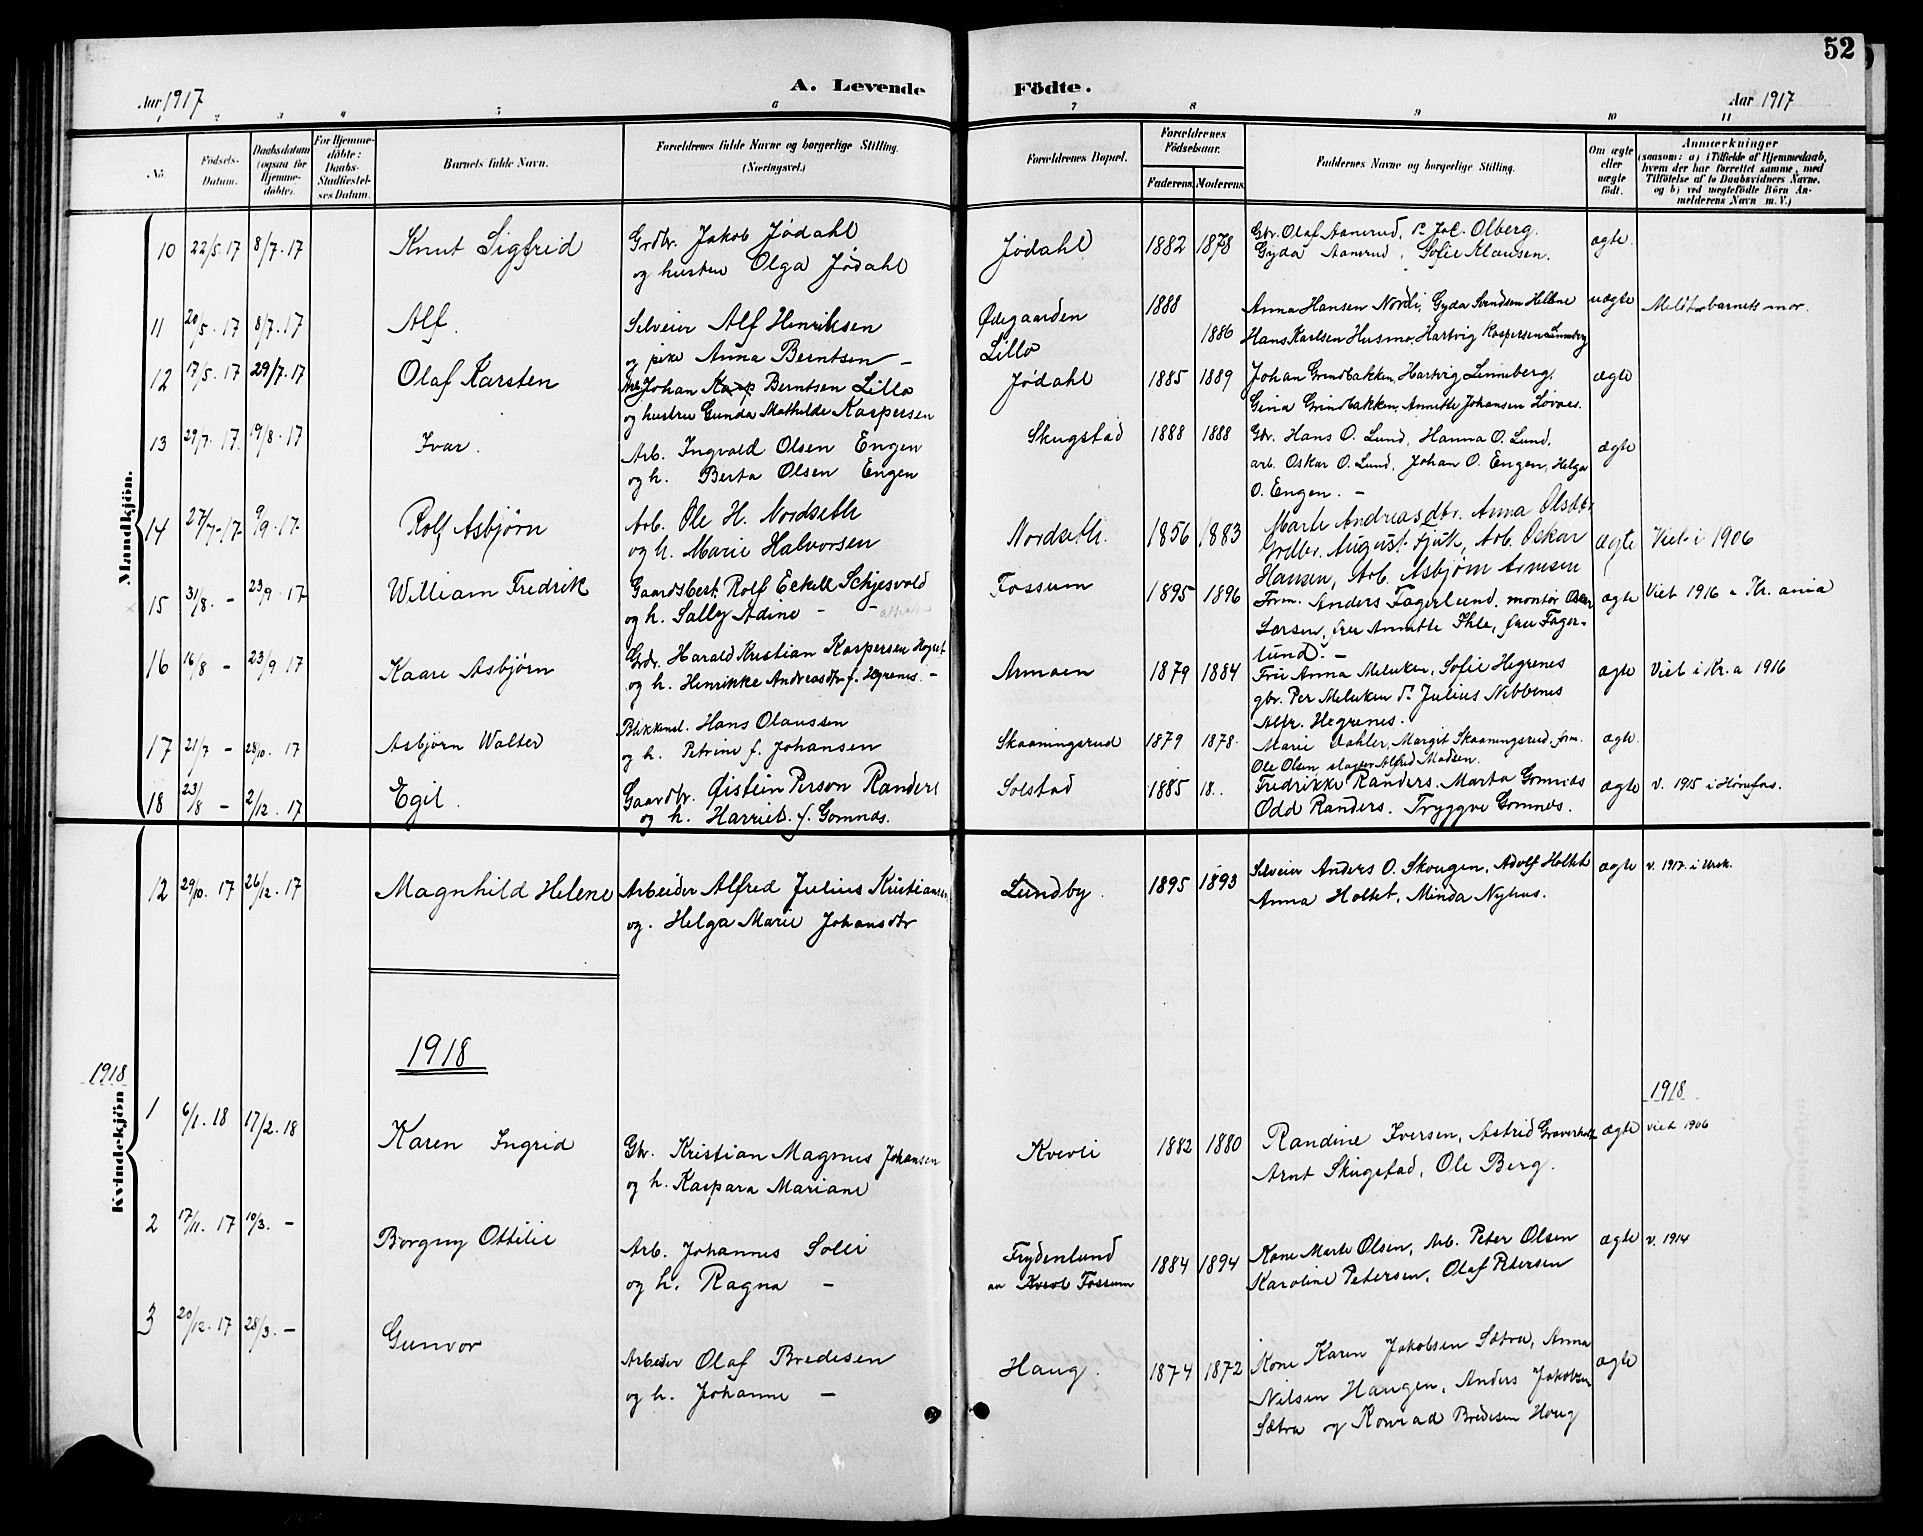 52
Aar 1917
A. Levende Födte.
Aar 1917
2 3 4 5 6 7 8 9 10 11
No.
Födsels-Datum.
Daabsdatum (ogsaa for Hjemmedöbte).
For Hjemmedöbte: Daabs-Stadfæstelses Datum.
Barnets fulde Navn.
Forældrenes fulde Navne og borgerlige Stilling. (Næringsvei.)
Forældrenes Bopæl.
Forældrenes Födselsaar.
Faderens. Moderens.
Faddernes Navne og borgerlige Stilling.
Om ægte eller uægte födt.
Anmærkninger
(saasom: a) i Tilfælde af Hjemmedaab, hvem der har forrettet samme, med Tilföielse af to Daabsvidners Navne, og b) ved uægtefödte Börn Anmelderens Navn m. V.)
Mandkjön.
10 22/5 17 8/7. 17 Knut Sigfrid Grdbr. Jakob Jødahl
og hustru Olga Jødahl
Jødahl 1882 1878 Gbr. Olaf Aamrud, Joh. Olberg.
Gyda Aamrud, Sofie Klausen. ægte.
11 20/5. 17 8/7. 17 Alf. Selveier Alf Henriksen
og pike Anna Berntsen –
Ødegaarden 1888
Lillo 1886
Anna Hansen Nordli, Gyda Svendsen Hellene
Hans Karlsen Husmo, Hartvig Kaspersen Linneberg
uægte Meldt av barnets mor.
12 17/5. 17 29/7. 17 Olaf Karsten Arb. Johan Berntsen Lillo
og hustru Gunda Mathilde Kaspersen
Jødahl 1885 1889 Johan Grindbakken, Hartvig Linneberg,
Gina Grindbakken, Annette Johansen Løvaas. ægte
13 29/7. 17. 19/8. 17 Ivar. Arb. Ingvald Olsen Engen
og h. Berta Olsen Engen
Skugstad 1888 1888 Gbr. Hans O. Lund, Hanna O. Lund,
arb. Oskar O. Lund, Johan O. Engen, Helga
O. Engen. – ægte
14 27/7 – 17. 9/9. 17. Rolf Asbjørn Arb. Ole H. Nordseth
og h. Marie Halvorsen
Nordseth. 1856 1883 Marte Andreasdtr. Anna Olsdtr,
Grdbr. August Fjuk, Arb. Oskar
Hansen, Arb. Asbjørn Arnesen
ægte Viet i 1906
15 31/8. – 23/9. 17 William Fredrik Gaardsbest. Rolf Eckell Schjesvold
og h. Sally Adine – –
Fossum 1895 1896 Form. Anders Fagerlund, montør Oskar
Larsen, fru Annette Ihle, fru Fager-
lund. –
ægte Viet 1916 i Kr. ania
16 16/8 – 23/9 17 Kaare Asbjørn Grdr. Harald Kristian Kaspersen
og h. Henrikke Andreasdtr f. Hegrenes. –
Aamoen 1879 1884 Fru Anna Meluken, Sofie Hegrenes
gbr. Per Meluken Julius Nibbenes
Alfr. Hegrenes.
ægte Viet i Kr.a 1916
17 21/7 – 28/10. 17 Asbjørn Walter Blikkensl. Hans Olaussen
og h. Petrine f. Johansen
Skaaningsrud 1879 1878. Marie Dahler, Margit Skaaningsrud, form.
Ole Olsen, slagter Alfred Madsen. ægte.
18 23/8 – 2/12. 17 Egil. Gaardbr. Øistein Person Randers
og h. Harriet. f. Gomnæs.
Solstad 1885 18.. Fredrikke Randers. Marta Gomnæs
Odd Randers. Tryggve Gomnæs.
ægte v. 1915 i Hønefos.
12 29/10. 17 26/12. 17 Magnhild Helene Arbeider Alfred Julius Kristiansen
og. Helga Marie Johansdtr
Lundby. 1895 1893 Selveier Anders O. Skougen, Adolf Holtet
Anna Holtet, Minda Nyhus.
ægte v. 1917. i Ursk.
1918
1918
1918
Kvindekjön
1 6/1. 18 17/2. 18 Karen Ingrid Gbr. Kristian Magnus Johansen
og h. Kaspara Mariane
Kvevli 1882 1880 Randine Iversen, Astrid Graverholt
Arnt Skugstad, Ole Berg.
ægte viet 1906
2 17/11. 17 10/3. – Borgny Ottilie Arb. Johannes Solli
og h. Ragna –
Frydenlund
Fossum
1884 1894 Kone Marte Olsen, Arb. Peter Olsen
Karoline Petersen, Olaf Petersen
ægte v. 1914
3 20/12. 17 28/3. – Gunvor Arbeider Olaf Bredesen
og h. Johanne –
Haug. 1874 1872 Kone Karen Jakobsen Sætra, Anna
Nilsen Haugen, Anders Jakobsen
Sætra og Konrad Bredesen Haug
ægte